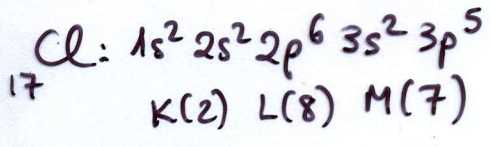 ₁₇Cl: 1s² 2s² 2p⁶ 3s² 3p⁵
K(2) L(8) M(7)